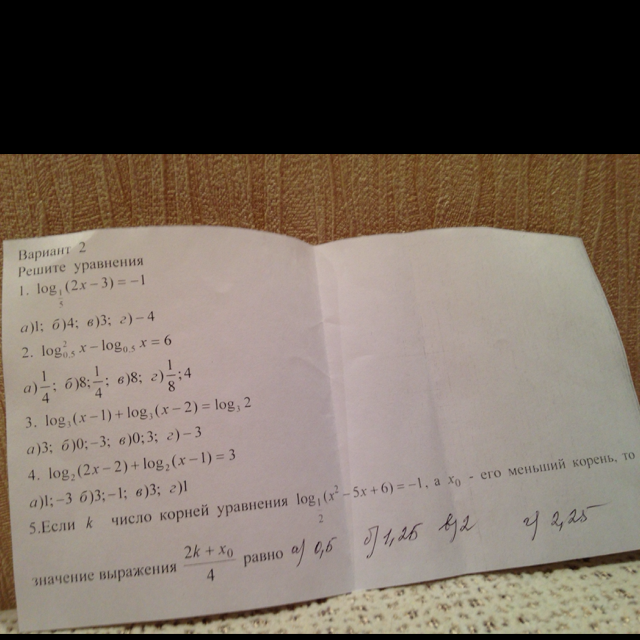 Вариант 2
Решите уравнения
1. log_{1/5}(2x − 3) = −1
а)1; б)4; в)3; г)−4
2. log²_{0,5} x − log_{0,5} x = 6
а)1/4; б)8;1/4; в)8; г)1/8;4
3. log₃(x − 1) + log₃(x − 2) = log₃ 2
а)3; б)0;−3; в)0;3; г)−3
4. log₂(2x − 2) + log₂(x − 1) = 3
а)1;−3 б)3;−1; в)3; г)1
5.Если k число корней уравнения log_{1/2}(x² − 5x + 6) = −1, а x₀ - его меньший корень, то
значение выражения (2k + x₀)/4 равно а) 0,5 б) 1,25 в) 2 г) 2,25